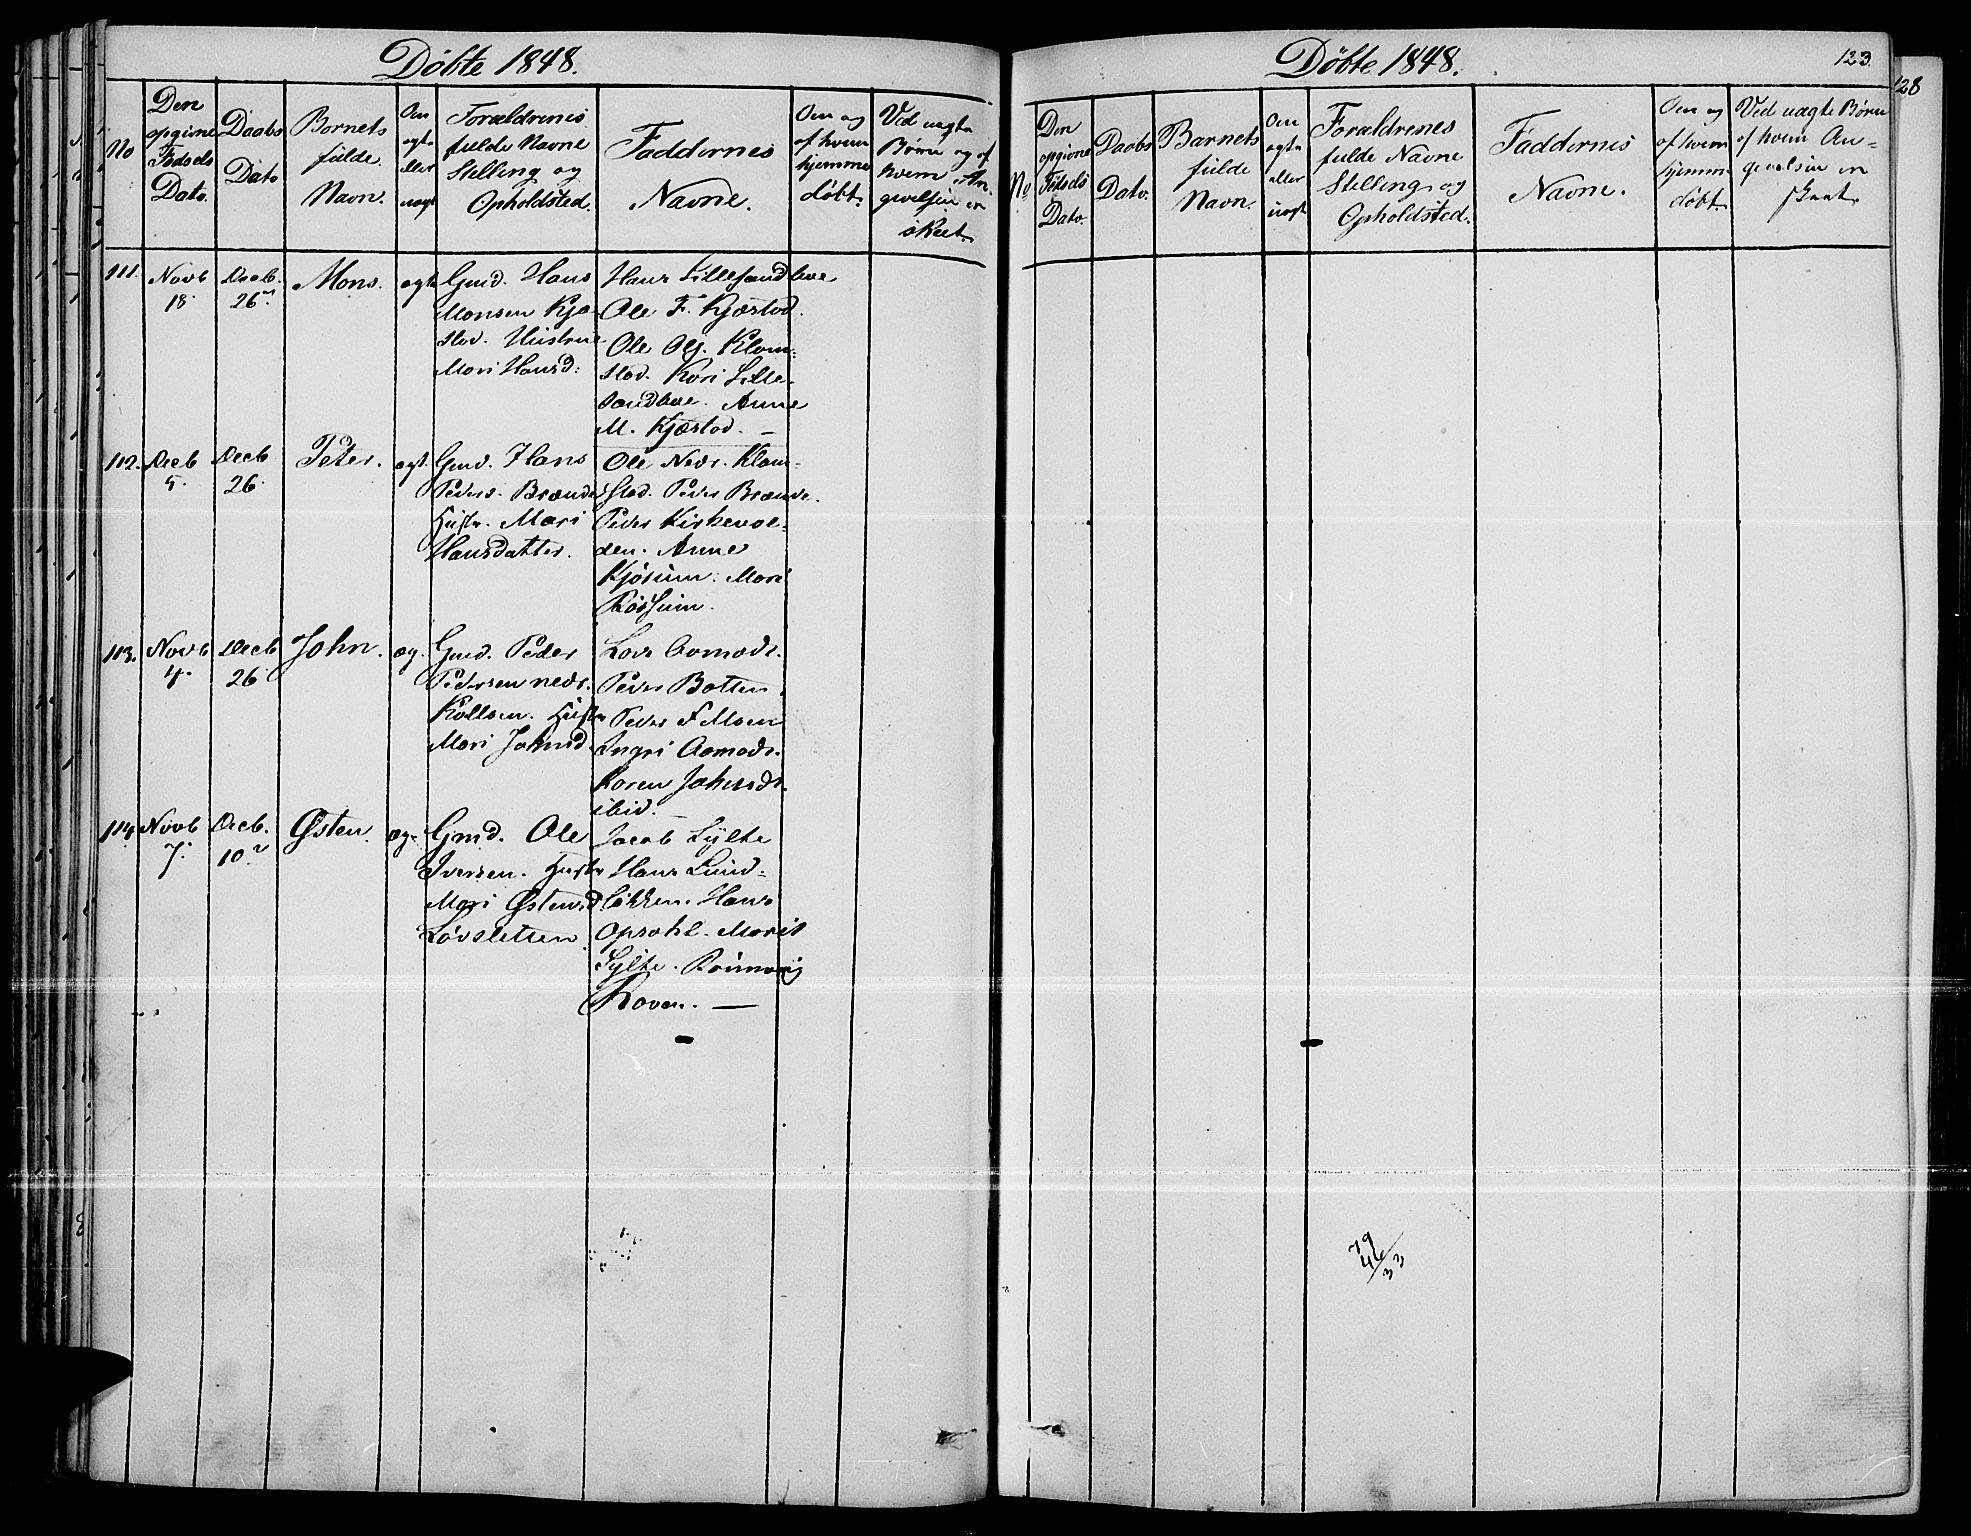 Döbte 1848.
No
Den opgivne Födsels Dato.
Daabs Dato
Barnets fulde Navn.
Om ægte eller uægte
Forældrenes fulde Navne Stilling og Opholdsted.
Faddernes Navne.
Om og af hvem hjemmedöbt.
Ved uægte Börn og af hvem Angivelsen er skeet.
111. Novb 18. Decb. 26. Mons. ægte
Gmd. Hans
Monsen Kjæ-
stad. Hustrue
Mari Hansd:
Hans Lillesandboe
Ole F. Kjæstad.
Ole Klom-
stad. Kari Lille-
sandboe. Anne
M. Kjæstad. —
112. Decb 5. Decb 26. Peter. ægt.
Gmd. Hans
Peders. Brænde
Hustr. Mari
Hansdatter.
Ole Nedr. Klom-
stad. Peder Brænde.
Peder Kirkevol-
den. Anne
Kjösum. Mari
Rössum.
113. Novb 4. Decb 26 John. æg.
Gmd. Peder
Pedersen nedr.
Kollsen. Hustr
Mari Johnsd.
Lars Aamodt.
Peder Botten.
Peder F Moen
Ingri Aamodt.
Karen Johnsdt.
ibid. —
114. Novb 7. Decb. 10 Østen. æg.
Gmd. Ole
Iversen. Hustr
Mari Østensd.
Lövsletten.
Jacob Sylte
Hans Lund-
lökken. Hans
Opsahl. Marit
Sylte.
Döbte 1848.
123.
128
No
Den opgivne Födsels Dato.
Daabs Dato.
Barnets fulde Navn.
Om ægte eller uægte
Forældrenes fulde Navne Stilling og Opholdsted.
Faddernes Navne.
Om og af hvem hjemmedöbt.
Ved uægte Börn af hvem Angivelsen er skeet.
79
46/33